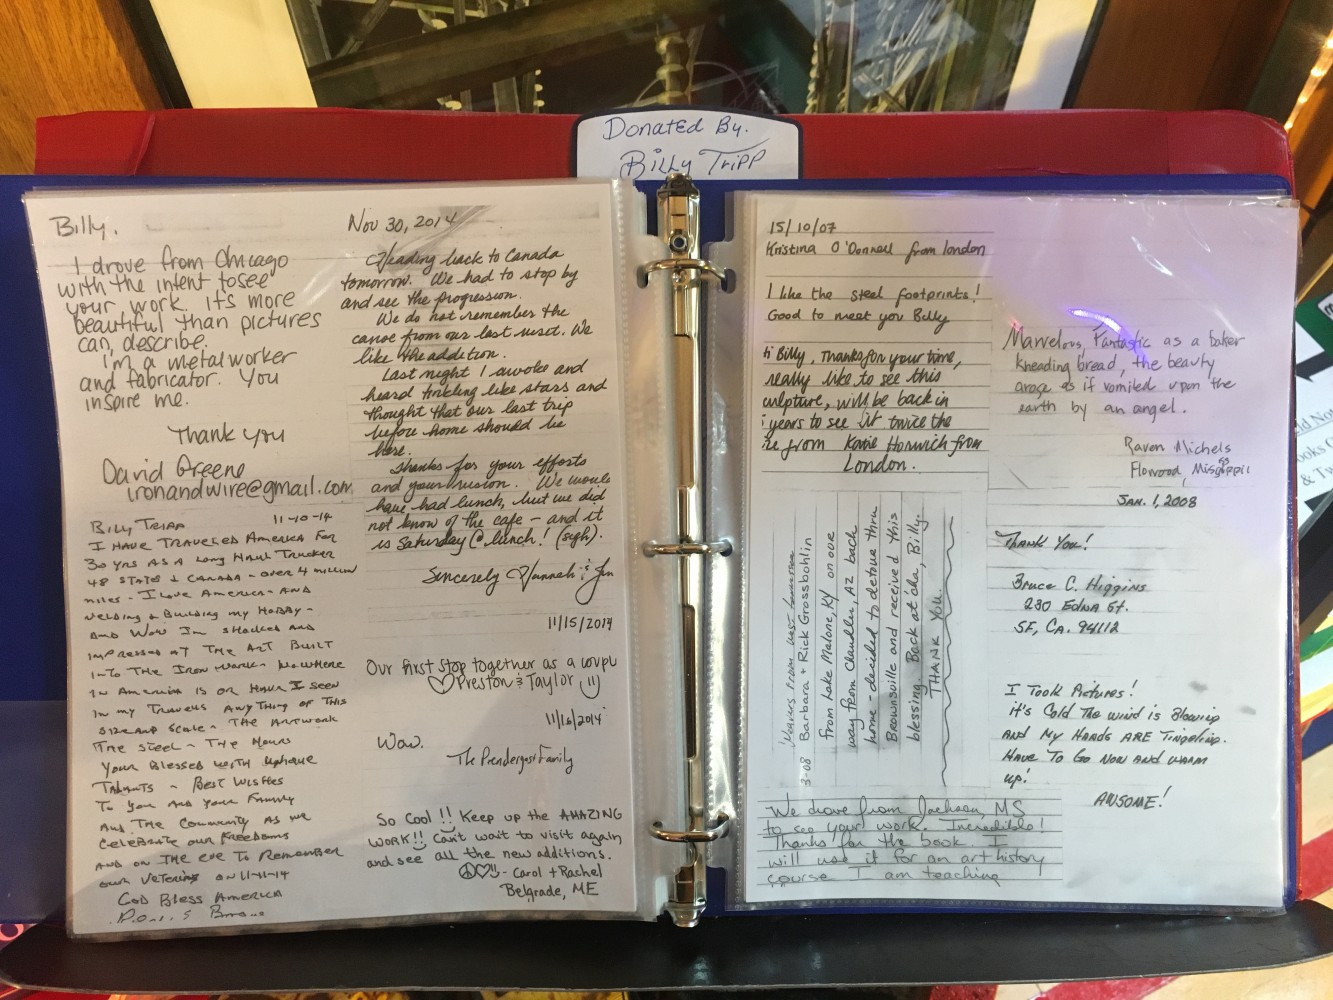 Donated By.
Billy Tripp
Billy.
I drove from Chicago
with the intent to see
your work. it's more
beautiful than pictures
can, describe.
i'm a metal worker
and fabricator. You
inspire me.
Thank you
David Greene
ironandwire@gmail.com
Billy Tripp 11-10-14
I Have Traveled America For
30 yrs As A Long Haul Trucker
48 States & Canada - over 4 million
miles - I Love America - And
welding & Building my Hobby -
And Wow Im shocked And
impressed AT The Art Built
In To The Iron Work - No where
In America is or Have I seen
In my Travels Any Thing of This
Size and Scale - The Artwork
The Steel - The Hours
Your Blessed With unique
Talants - Best Wishes
To you And your Family
And The Community As we
Celebrate our Freedoms
And on The eve To Remember
our Veterins on 11-11-14
God Bless America
Nov 30, 2014
Heading back to Canada
tomorrow. We had to stop by
and see the progression.
We do not remember the
canoe from our last visit. We
like the addition.
Last night I awoke and
heard tinkling like stars and
thought that our last trip
before home should be
here.
Thanks for your efforts
and your vision. We would
have had lunch, but we did
not know of the cafe - and it
is Saturday @ lunch! (sigh).
Sincerely Hannah & Jim
11/15/2014
Our first stop together as a coupl
Preston & Taylor
11/16/2014
Wow.
The Prendergast Family
So Cool!! Keep up the AMAZING
WORK!! Can't wait to visit again
and see all the new additions.
- Carol + Rachel
Belgrade, ME
15/10/07
Kristina O'Donnell from london
I like the steel footprints!
Good to meet you Billy
hi Billy, Thanks for your time,
really like to see this
culpture, will be back in
years to see it twice the
ze from Katie Horwich from
London.
3-08 Barbara + Rick Grossbohlin
from Lake Malone, KY on our
way from Chandler, AZ back
home - decided to detour thru
Brownsville and received this
blessing. Back at cha, Billy.
THANK YOU.
We drove from Jackson, MS
to see your work. Incredible!
Thanks for the book. I
will use it for an art history
course I am teaching
Marvelous, Fantastic as a baker
kneading bread, the beauty
arose as if vomited upon the
earth by an angel.
Ravon Michels
Flowood, Mississippi
JAN. 1, 2008
Thank You!
Bruce C. Higgins
230 Edna St.
SF, CA. 94112
I Took Pictures!
it's Cold The wind is Blowing
AND MY HANDS ARE Tingeling.
Have To Go Now AND WARM
up!
AWSOME!